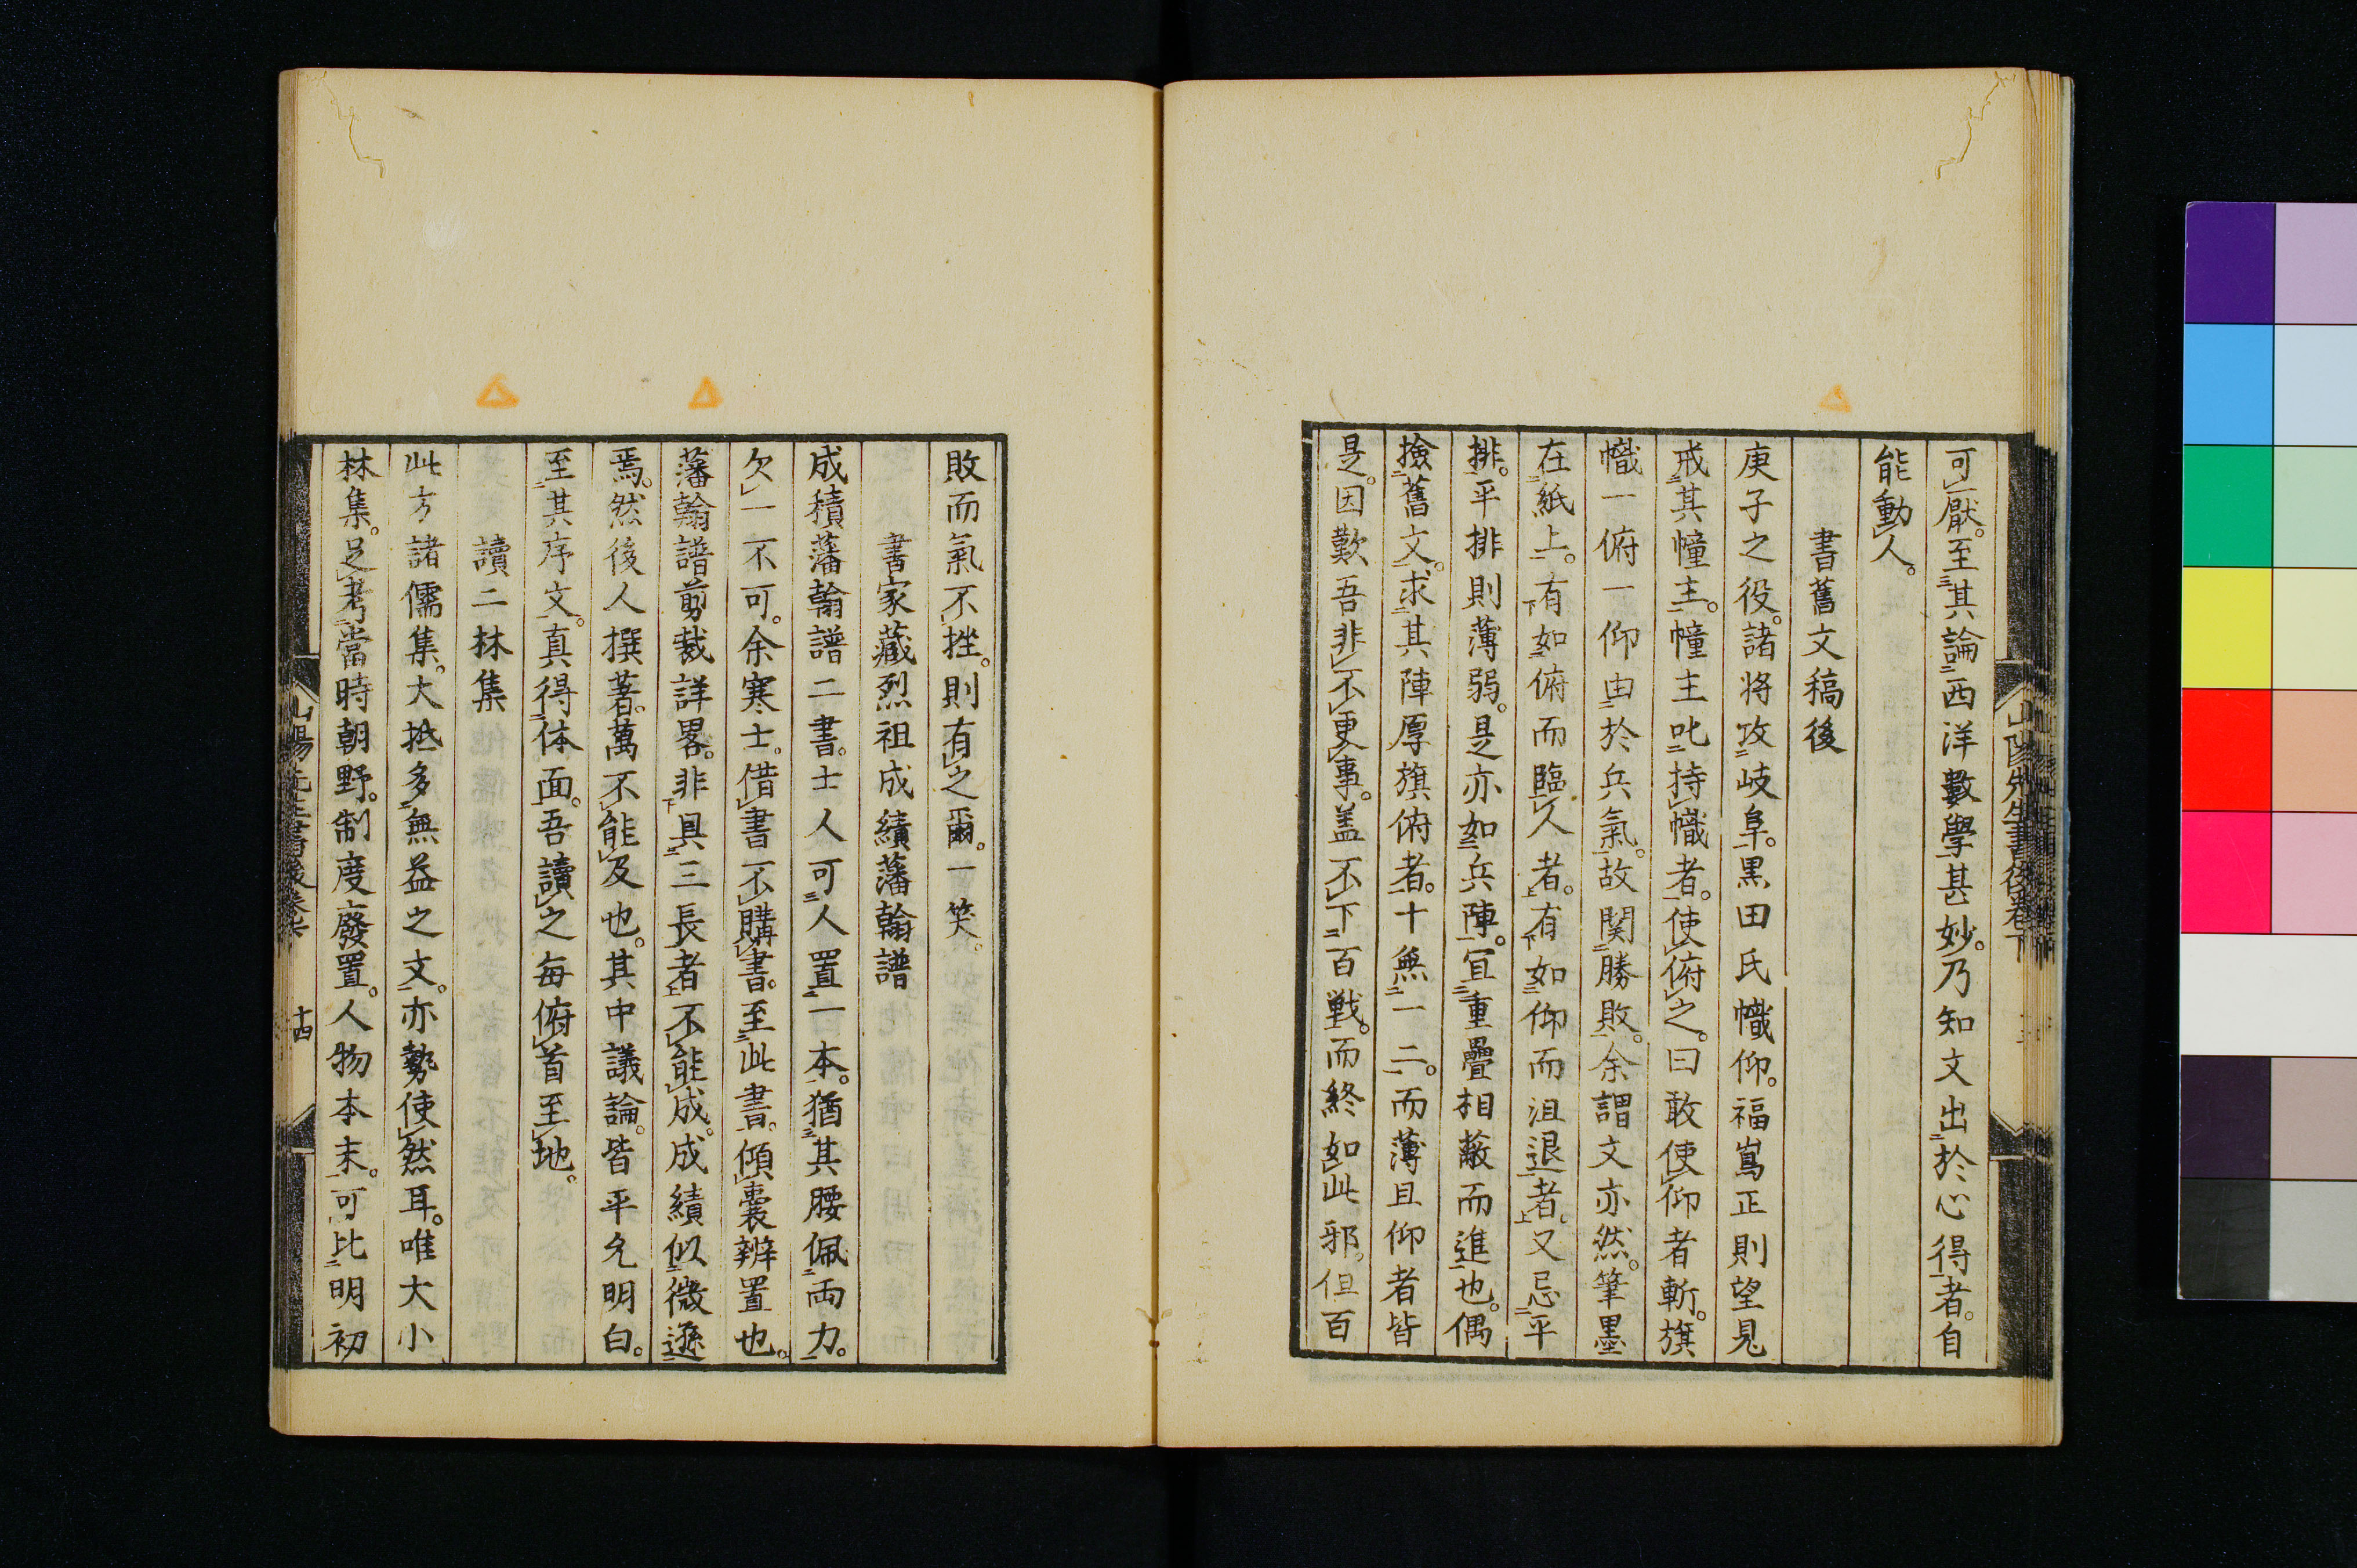 可厭。至其論西洋數學甚妙。乃知文出於心得者。自
能動人。
書舊文稿後
庚子之役。諸将攻岐阜。黒田氏幟仰。福嶌正則望見
戒其幢主。幢主叱持幟者。使俯之。曰敢使仰者斬。旗
幟一俯一仰由於兵氣。故関勝敗。余謂文亦然。筆墨
在紙上。有如俯而臨人者。有如仰而沮退者。又忌平
排。平排則薄弱。是亦如兵陣。宜重疊相蔽而進也。偶
撿舊文。求其陣厚旗俯者。十無一二。而薄且仰者皆
是。因歎吾非不更事。盖不下百戦。而終如此邪。但百
敗而氣不挫。則有之爾。一笑。
書家藏烈祖成績藩翰譜
成積藩翰譜二書。士人可人置一本。猶其腰佩両力。
欠一不可。余寒士。借書不購書。至此書。傾囊辨置也。
藩翰譜剪裁詳畧。非具三長者不能成。成績似微遜
焉。然後人撰著。萬不能及也。其中議論。皆平允明白。
至其序文。真得体面。吾讀之每俯首至地。
讀二林集
此方諸儒集。大抵多無益之文。亦勢使然耳。唯大小
林集。足考當時朝野。制度廢置。人物本末。可比明初
山陽先生書後卷下
十四